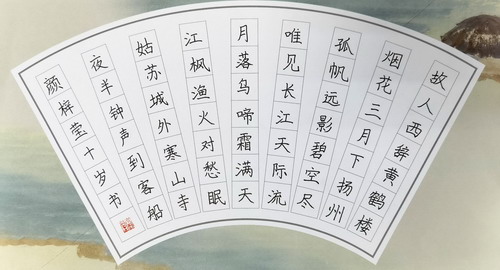 故人西辞黄鹤楼
烟花三月下扬州
孤帆远影碧空尽
唯见长江天际流
月落乌啼霜满天
江枫渔火对愁眠
姑苏城外寒山寺
夜半钟声到客船
颜梓莹十岁书